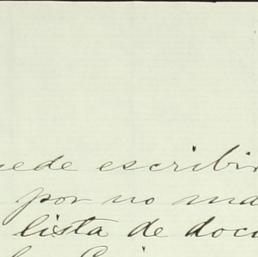 ede escribir
por no ma
lista de docu